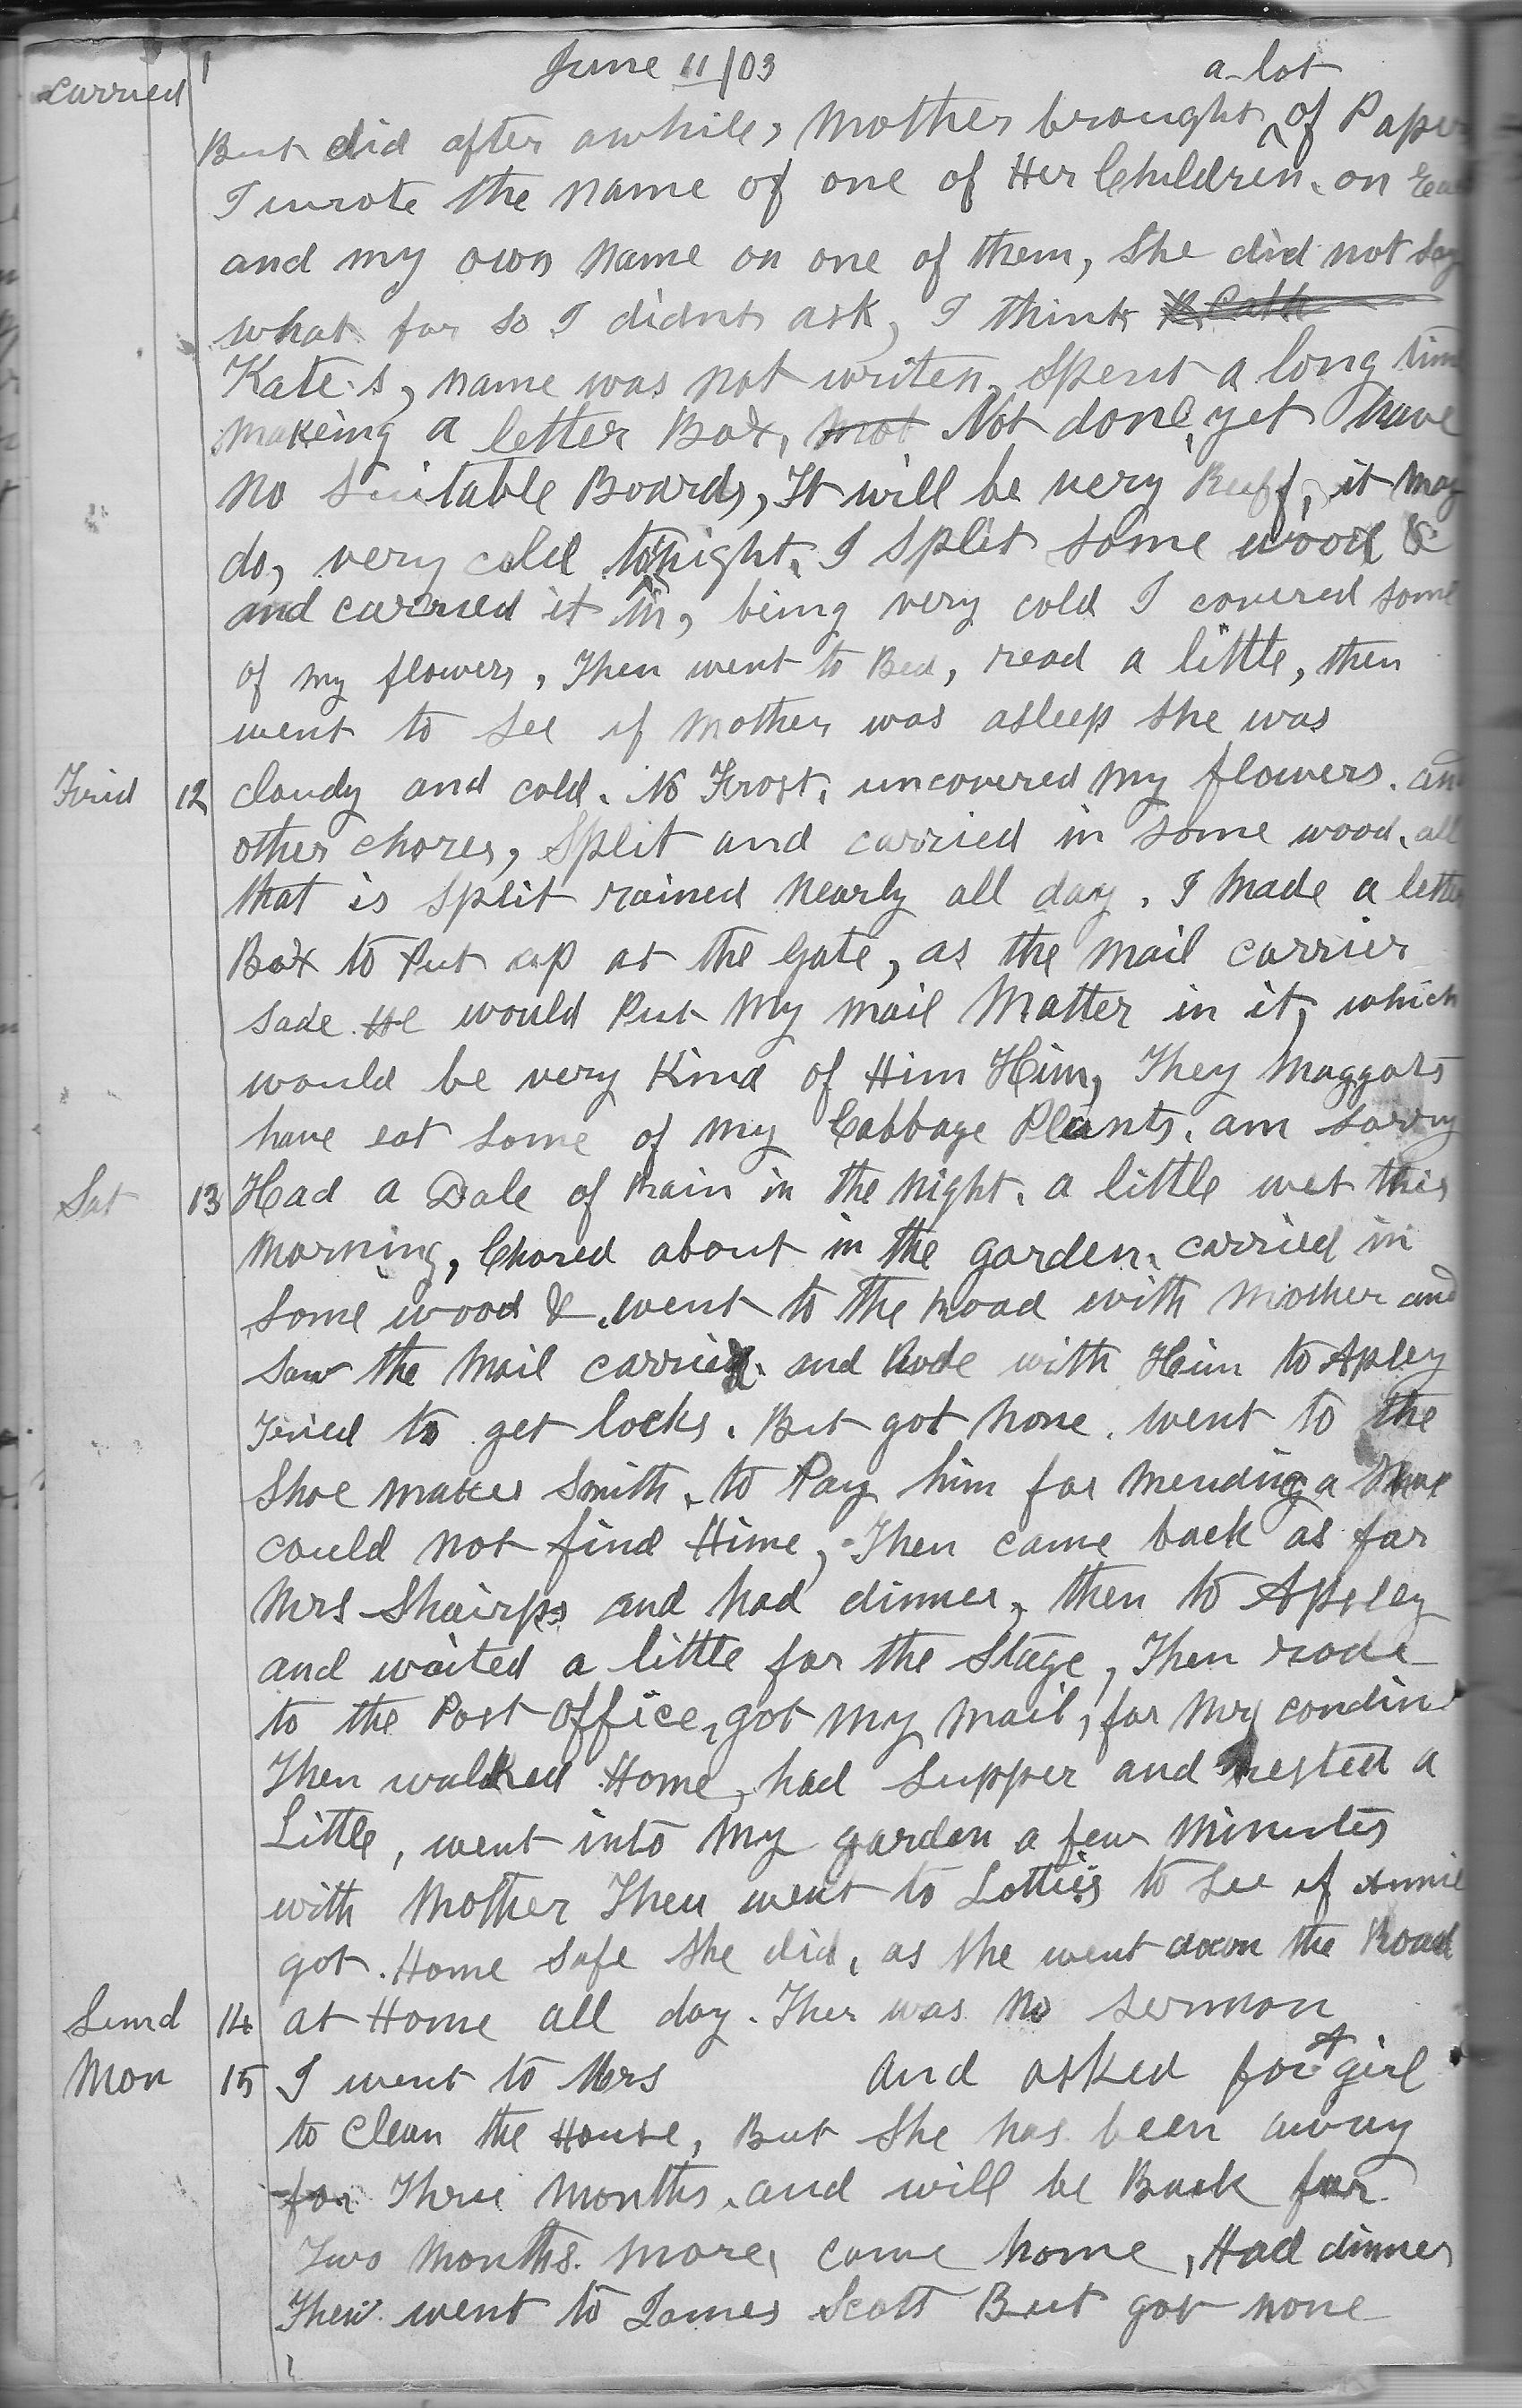 June 11/03
carried
But did after awhile, Mother brought a lot of Paper
I wrote the name of one of Her Children. on Each
and my own Name on one of them, She did not say
what for so I didnt ask, I think
Kate.s, name was not writen, Spent a long time
makeing a letter Box, not Not done yet have
No Suitable Boards, It will be very Ruff, it may
do, very cold tonight. I split some wood &
and carried it in, being very cold I covered some
of my flowers, Then went to Bed, read a little, then
went to see if Mother was asleep she was
Frid 12 cloudy and cold. No Frost, uncovered my flowers. and
other chores, Split and carried in some wood. all
that is split rained Nearly all day. I made a letter
Box to Put up at the Gate, as the Mail carrier
sade He would Put My Mail Matter in it, which
would be very Kind of Him Him, They Maggots
have eat some of my Cabbage Plants. am sorry
Sat 13 Had a Dale of Rain in the Night. a little wet this
Morning, Chored about in the garden. carried in
some wood & went to the Road with Mother and
Saw the Mail carrier. and Rode with Him to Apley
Tried to get locks. But got None. went to the
Shoe maker Smith. to Pay him for Mending a Shoe
could not find Hime, Then came back as far
Mrs Shairps and had dinner, then to Apsley
and waited a little for the Stage, Then rode
to the Post Office, got my Mail, for Mrs condin
Then walked Home, had Supper and rested a
Little, went into My garden a few Minutes
with Mother Then went to Lotties to see if Annie
got Home safe She did, as she went down the Road
Sund 14 at Home all day. Ther was No Sermon
Mon 15 I went to Mrs and asked for A girl
to Clean the House, But She has been away
for Three Months. and will be Back for
Two Months. More, came home, Had dinner
Then went to James Scott But got none